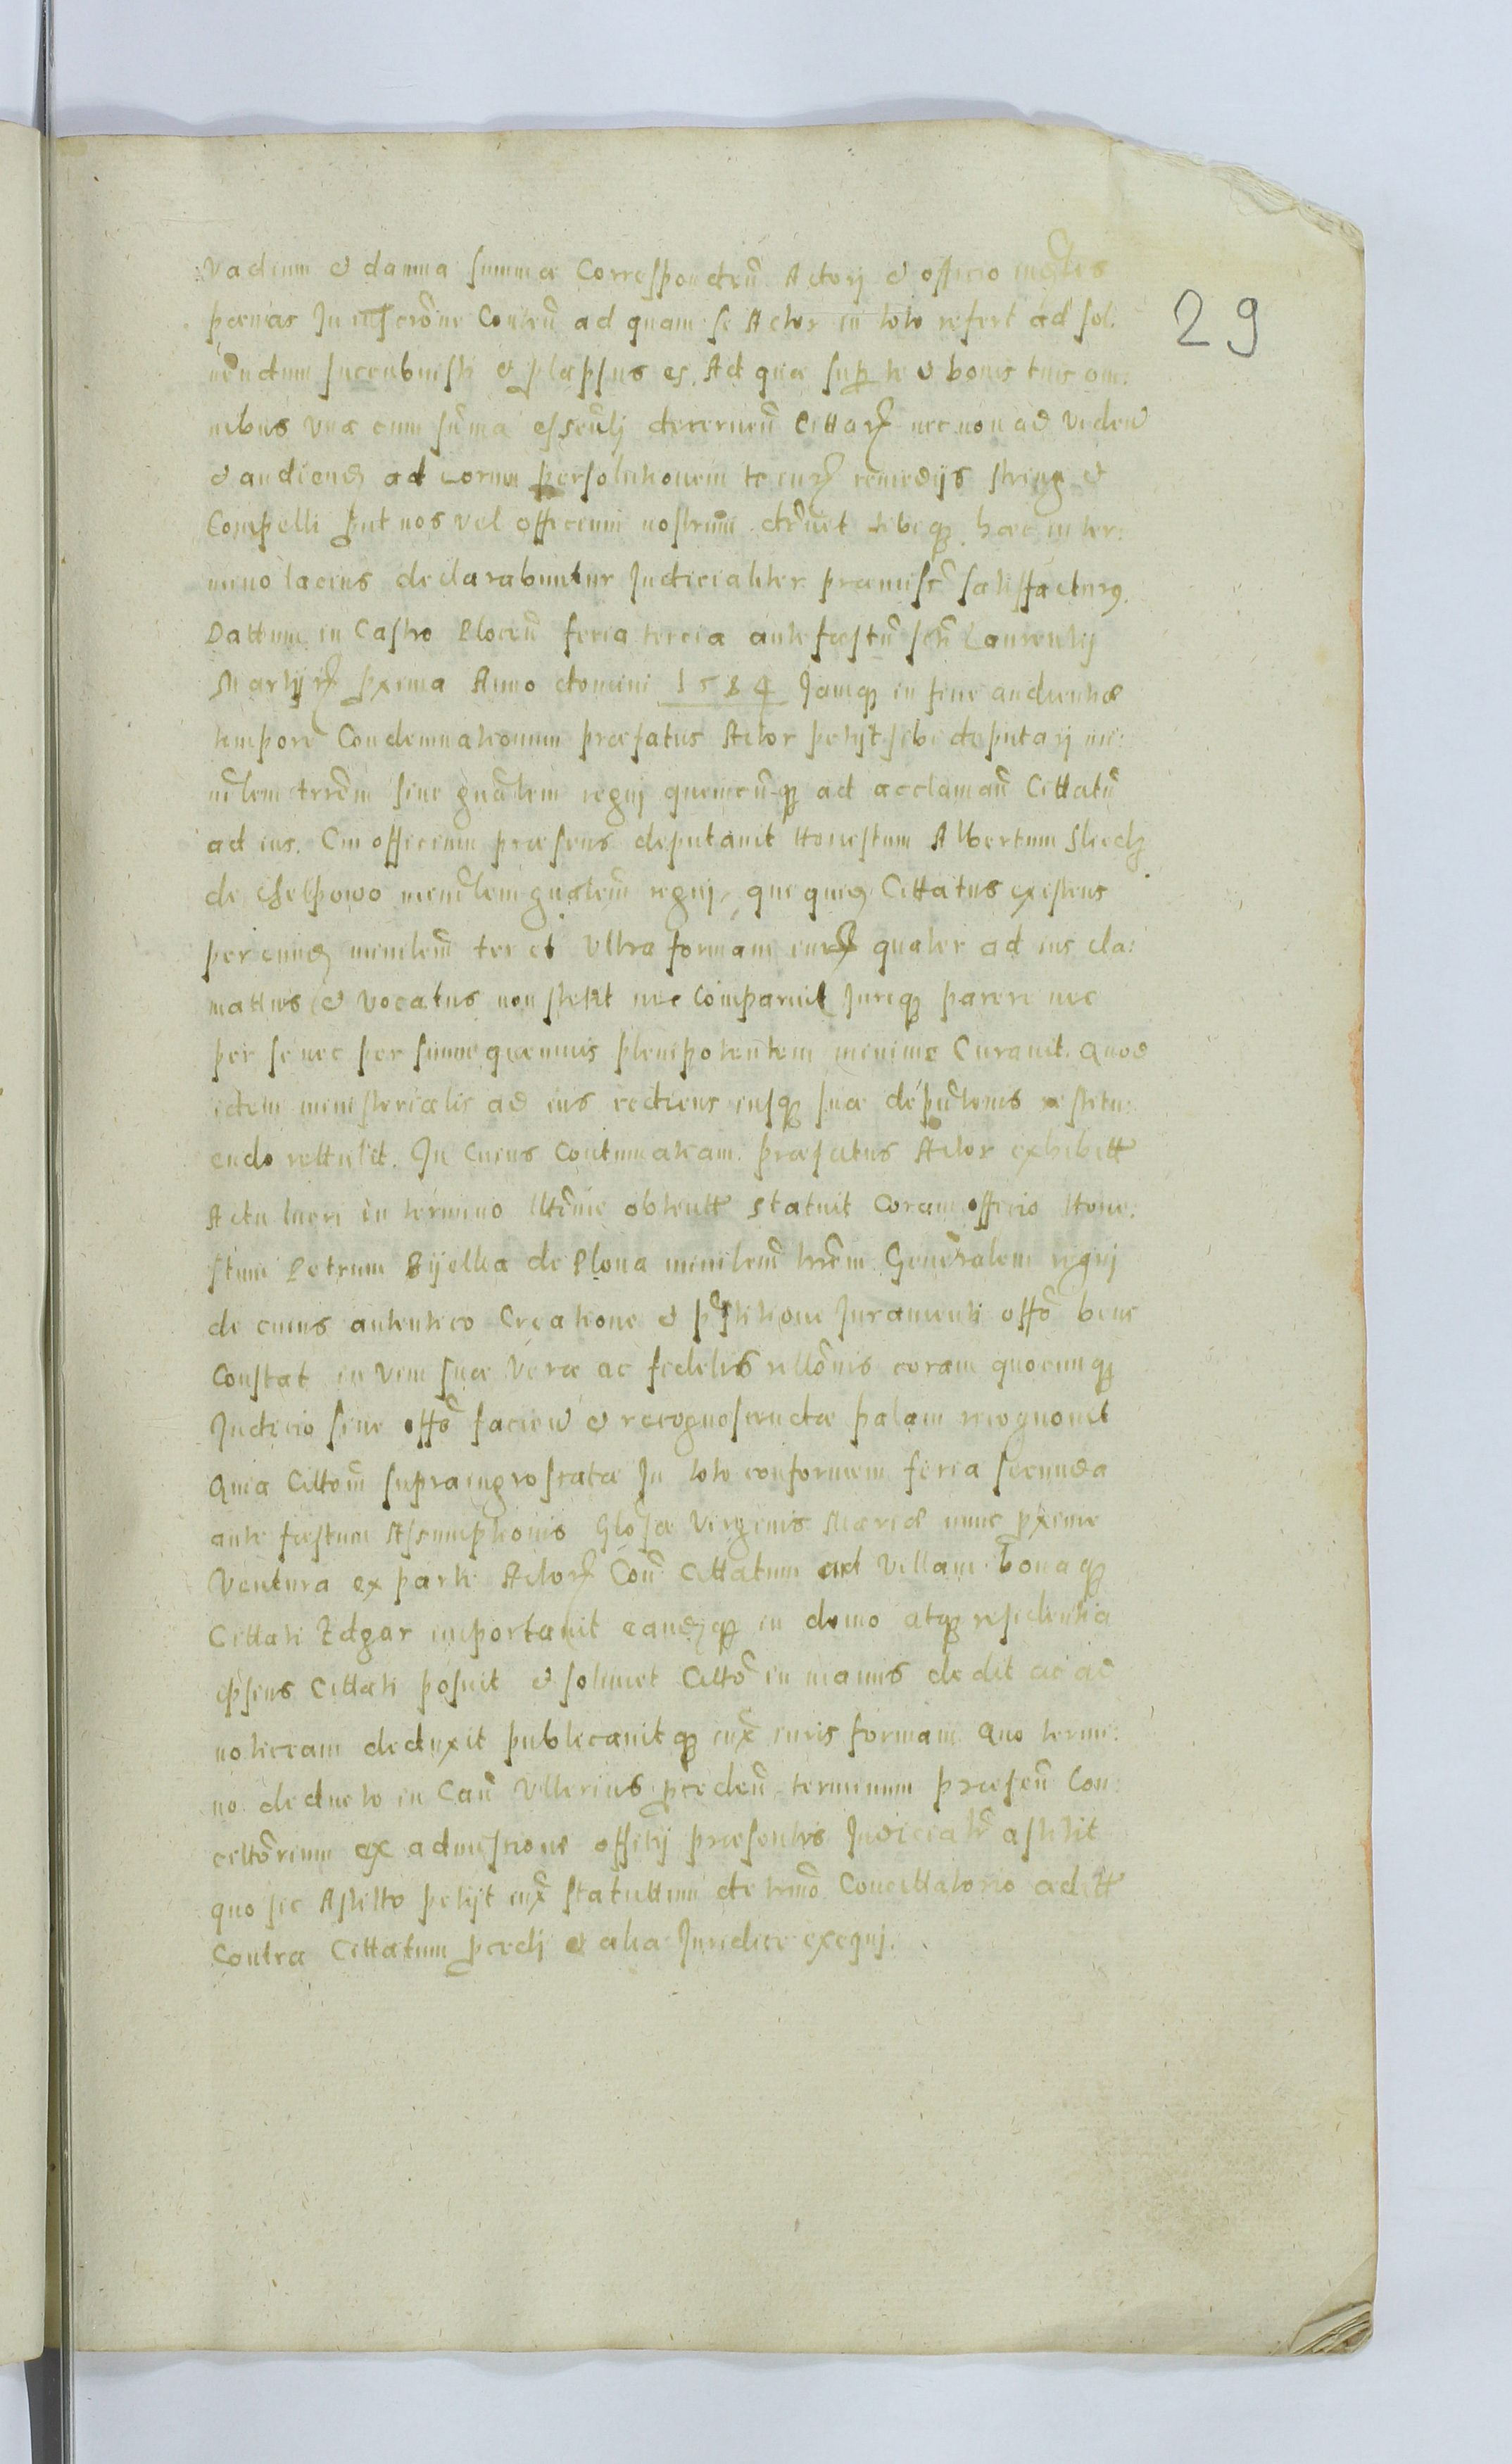 29
vadium et damna summæ Corresponden̄ Actorj et officio
pœnas In inscrōne Conten̄ ad quam se Actor in toto refert ad sol:
uendum sucubuisti et plapsus es. Ad quæ sup te et bonis tuis om:
nibus vna cum sūma essen̄lj decernen̄ Cittar necnon ad viden̄
et audiend ad eorum persolutionem te iur remedijs string et
Compelli put nos vel officium nostrum decernet tibiq hæc in ter:
mino lacius declarabuntur Judicialiter præmiss satisfacturus.
Dattum in Castro Plocen̄ feria tercia ante fæstū scti Laurentij
Martijr pxima Anno domini 1584 Jamq in fine audientiæ
tempore Condemnationum præfatus Actor petijt sibi deputarj mi:
nr̄lem trrēm siue gnālem regnj quemcūq ad acclaman̄ Cittatū
ad ius. Cui officium præsens deputauit Honestum Albertum Sliedz
de Chelpowo menr̄lem gnalem regnj, qui quid Cittatus existens
per eund minr̄lem ter et vltra formam iur quater ad ius cla:
mattus et vocatus non stetit nec Comparuit Juriq parere nec
per se nec per summequemuis plenipotentem minime Curauit. Quod
idem ministerialis ad ius rediens iusq suæ depūtionis restitu:
endo rettulit. In Cuius Contumatiam præfatus Actor exhibitt
Actu lucri in termino Vltime obtentt statuit Coram officio Hone:
stum Petrum Bijelka de Plona minr̄lem trrēm Generalem regnj
de cuius autentico Creatione et pstitione Juramenti offō bene
Constat in vim suæ veræ ac fidelis rellōnis coram quocunq
Judicio siue offō facien̄ et recognoscendæ palam recognouit
Quia Cittōm supraingrossatæ In toto conformem feria secunda
ante fæstum Assumptionis Glosæ Virginis Mariæ nunc pxime
Ventura ex parte Actor Con̄ Cittatum ad Villam bonaq
Cittati Zdgar importauit eandq in domo atq residentia
ipsius Cittati posuit et solimet Cittō in manus dedit ac ad
noticiam deduxit publicauitq iux iuris formam Quo termi:
no deducto in Cau Vlterius pceden̄ terminum præsen̄ Con:
cittōrium ex admissione officij præsentis Judicialr̄ astitit
quo sic Astitto petijt iux statuttum de trmō Concittatorio aditt
Contra Cittatum pcedj et alia Juridice exequj.